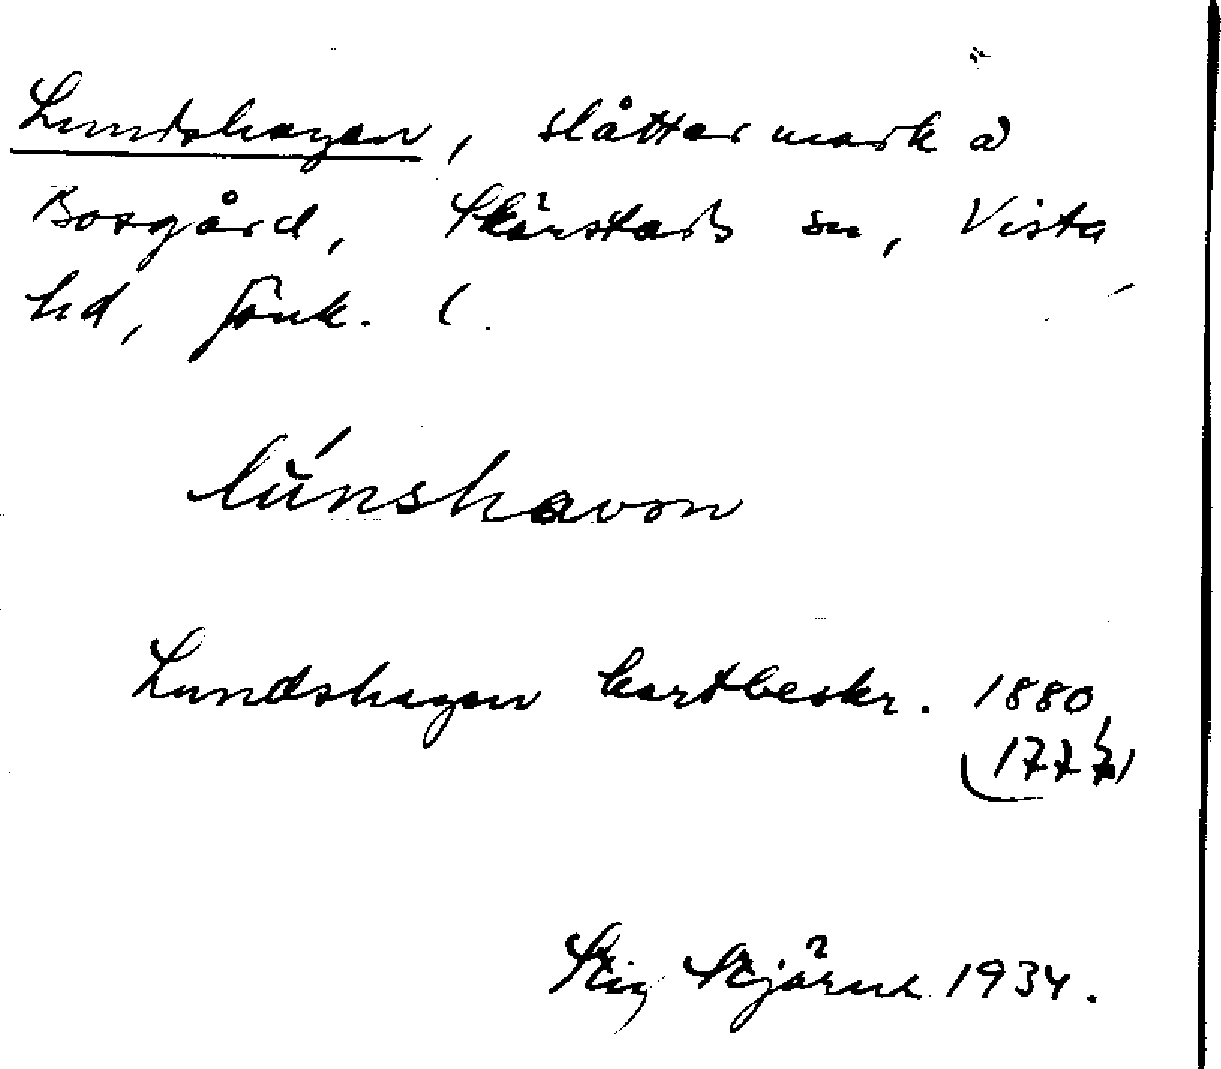 Lundshagen, slåttermark å
Bosgård, Skärstads sn, Vista
hd, Jönk. l.
lúnshavon
Lundshagen kartbeskr. 1880
Stig Stjärne 1934.